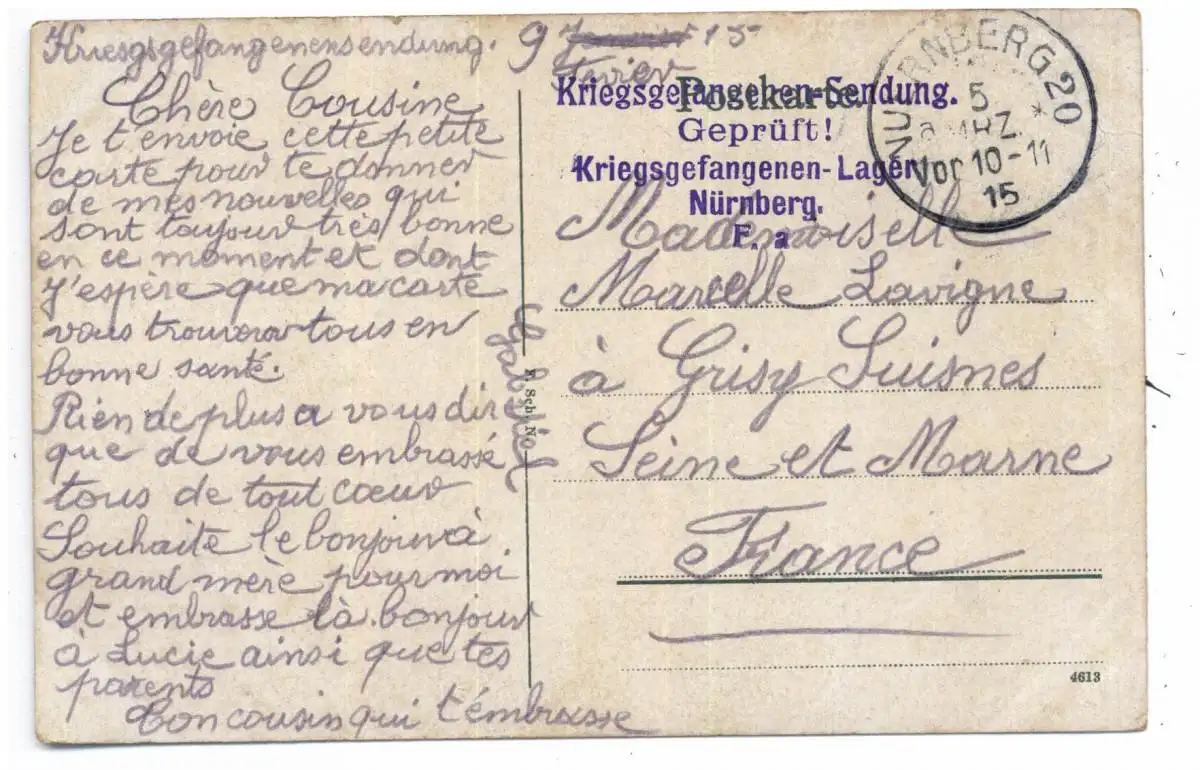 Kriesgsgefangenensendung. 9 Janvier 15
Fevier
Chère Cousine
Je t'envoie cette petite
carte pour te donner
de mes nouvelles qui
sont toujour très bonne
en ce moment et dont
j'espère que ma carte
vous trouvera tous en
bonne santé.
Rien de plus a vous dire
que de vous embrassé
tous de tout cœur
Souhaite le bonjour à
grand mère pour moi
et embrasse là. bonjour
à Lucie ainsi que tes
parents
Ton cousin qui t'émbrasse
Gabriel
Postkarte.
Kriegsgefangenen-Sendung.
Geprüft!
Kriegsgefangenen-Lager
Nürnberg.
F. a
NUERNBERG 20
5
MRZ. *
Vor 10-11
15
Mademoiselle
Marcelle Lavigne
à Grisy Suisnes
Seine et Marne
France
Sch No
4613